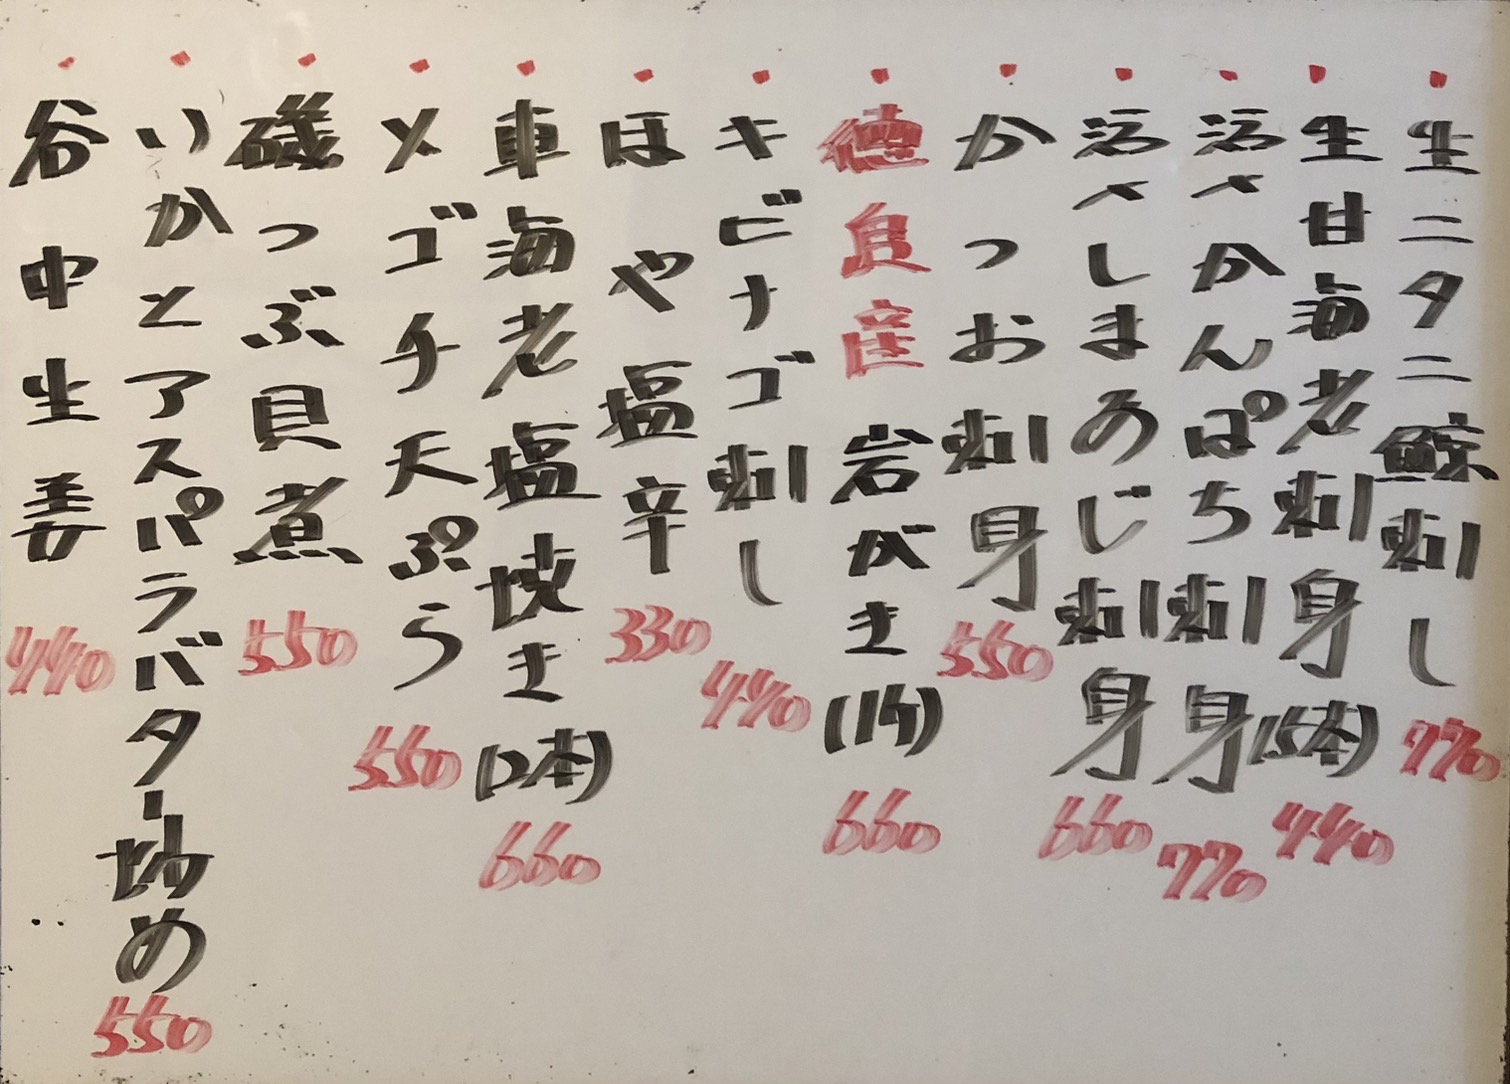 生ニタニ鯨刺し 770
生甘海老刺身(5本) 440
活〆かんぱち刺身 770
活〆しまあじ刺身 660
かつお刺身 550
徳良産岩がき(1ケ) 660
キビナゴ刺し 440
ほや塩辛 330
車海老塩焼き(2本) 660
メゴチ天ぷら 550
磯つぶ貝煮 550
いかとアスパラバター炒め 550
谷中生姜 440